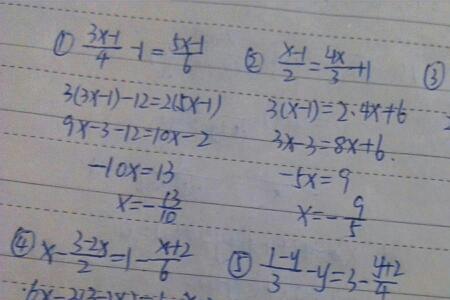 ① (3x-1)/4 -1 = (5x-1)/6
3(3x-1)-12=2(5x-1)
9x-3-12=10x-2
-10x=13
x=-13/10
② (x-1)/2 = 4x/3 +1
3(x-1)=2·4x+6
3x-3=8x+6.
-5x=9
x=-9/5
③
④ x-(3-2x)/2=1-(x+2)/6
⑤ (1-y)/3 -y=3-(y+2)/4